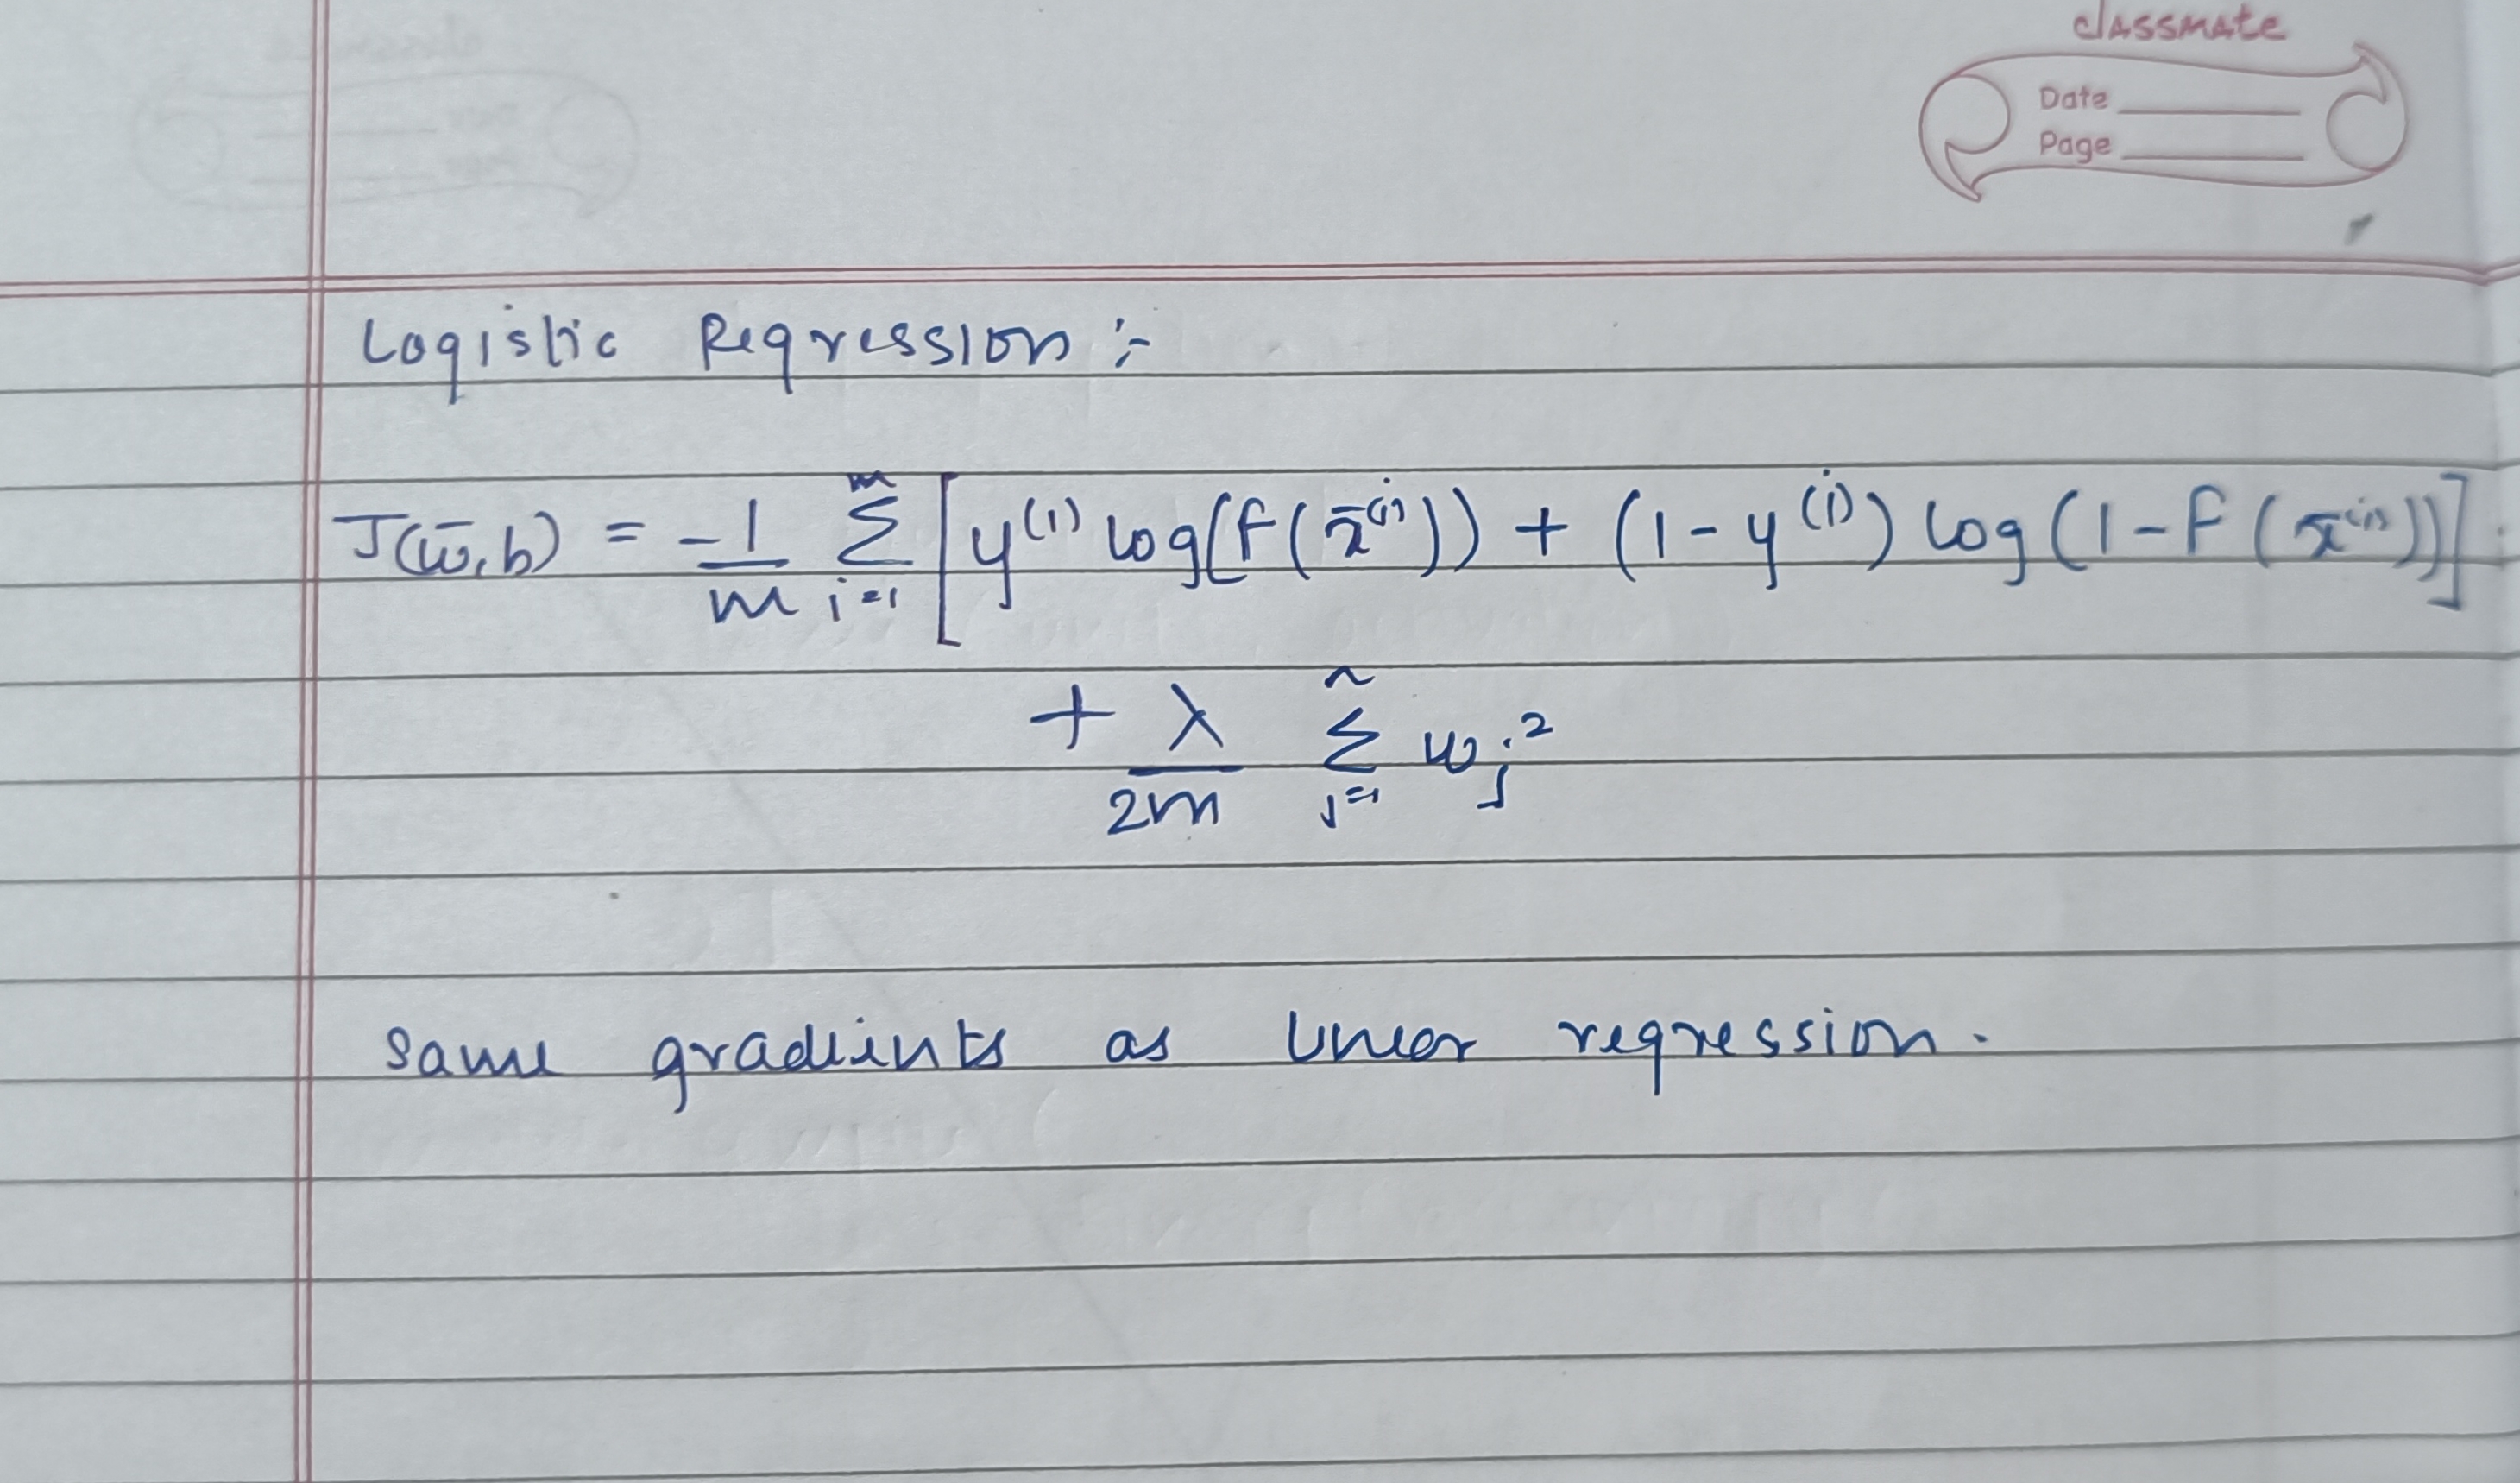 classmate
Date
Page
Logistic Regression :-
J(w̄,b) = -1/m Σ_{i=1}^{m} [y^{(i)} log(f(x̄^{(i)})) + (1-y^{(i)}) log(1-f(x̄^{(i)}))]
+ λ/2m Σ_{j=1}^{n} w_j^2
same gradients as linear regression.